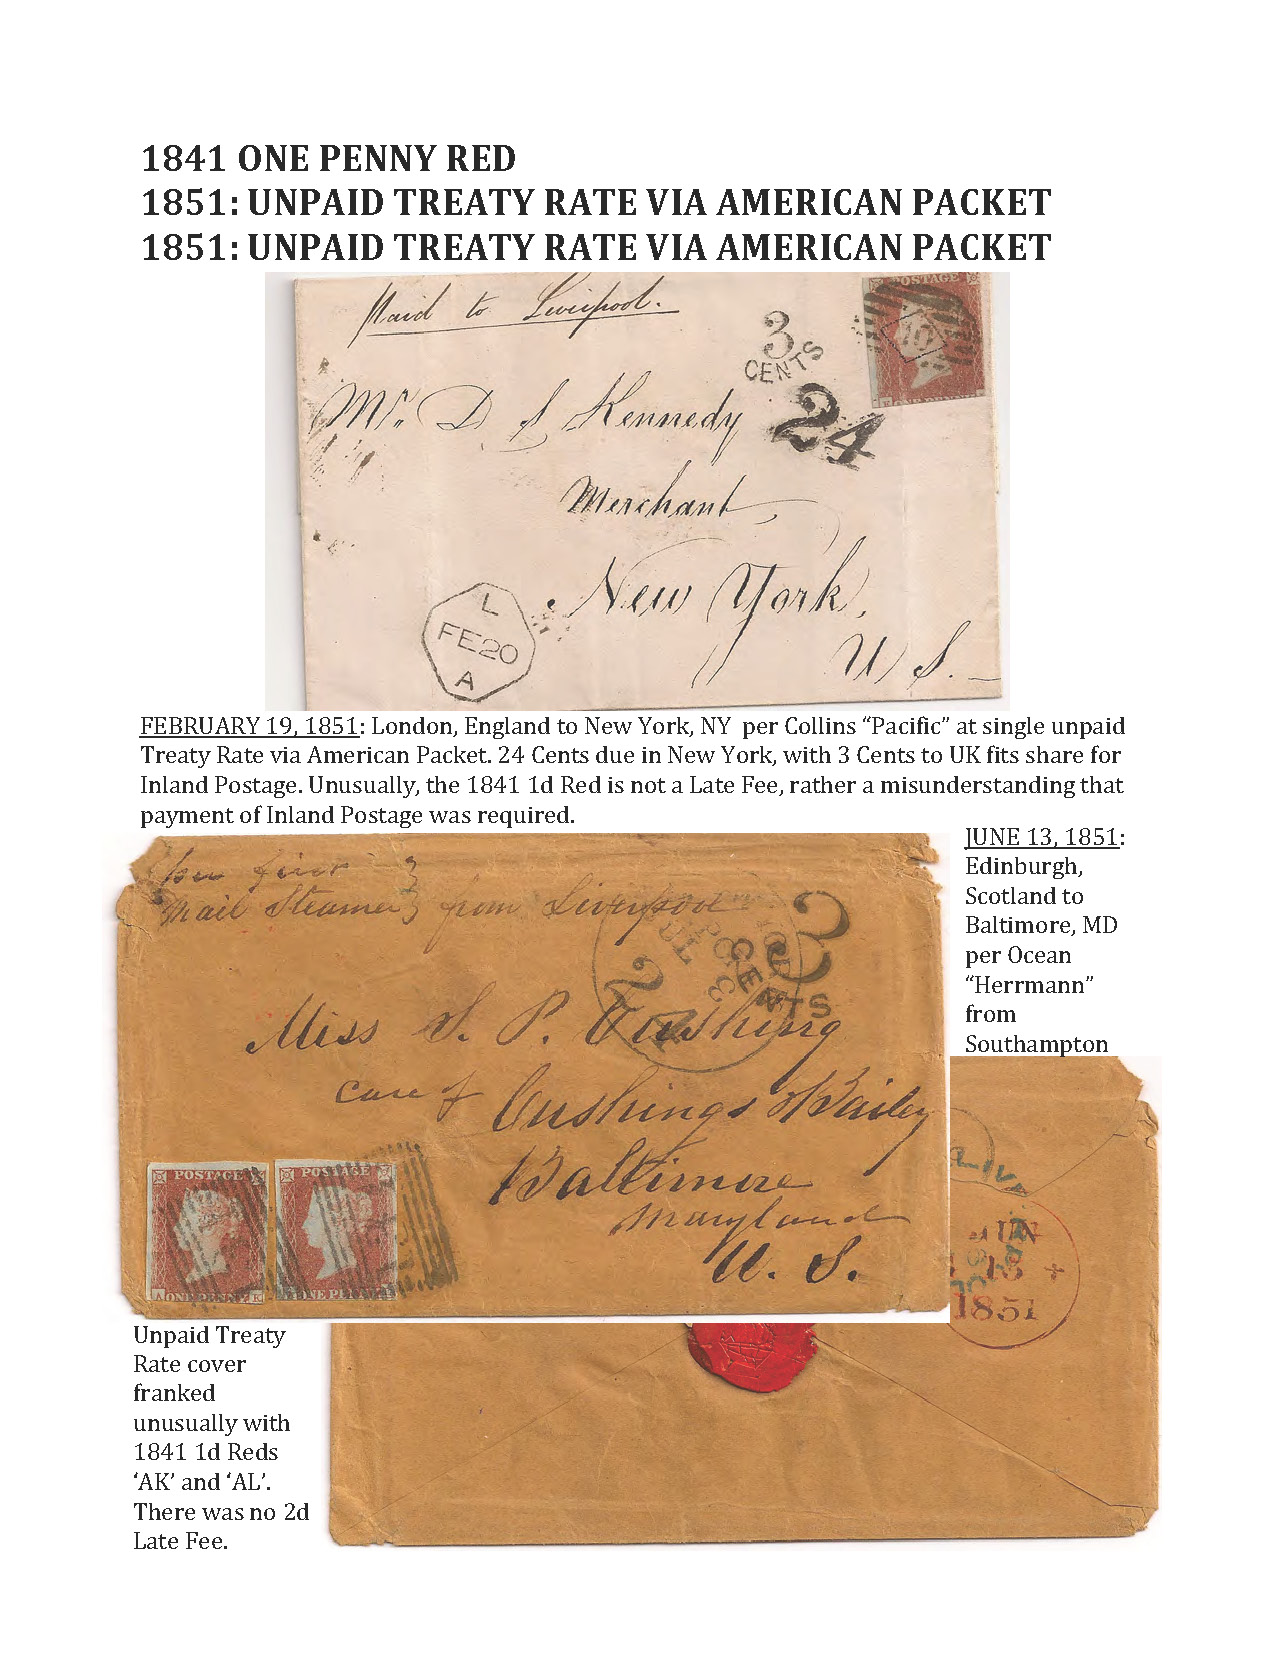 1841 ONE PENNY RED
1851: UNPAID TREATY RATE VIA AMERICAN PACKET
1851: UNPAID TREATY RATE VIA AMERICAN PACKET
Paid to Liverpool.
POSTAGE
3
CENTS
10
24
ONE PENNY
Mr. D S Kennedy
Merchant
New York,
U S.
L
FE20
A
FEBRUARY 19, 1851: London, England to New York, NY per Collins “Pacific” at single unpaid
Treaty Rate via American Packet. 24 Cents due in New York, with 3 Cents to UK fits share for
Inland Postage. Unusually, the 1841 1d Red is not a Late Fee, rather a misunderstanding that
payment of Inland Postage was required.
JUNE 13, 1851:
Edinburgh,
Scotland to
Baltimore, MD
per Ocean
“Herrmann”
from
Southampton
per first
Mail Steamer from Liverpool
3
CENTS
Miss S. P. Cushing
care of Cushings & Bailey
Baltimore
Maryland
U. S.
POSTAGE
POSTAGE
A ONE PENNY K
ONE PENNY
JUN
13
1851
Unpaid Treaty
Rate cover
franked
unusually with
1841 1d Reds
‘AK’ and ‘AL’.
There was no 2d
Late Fee.